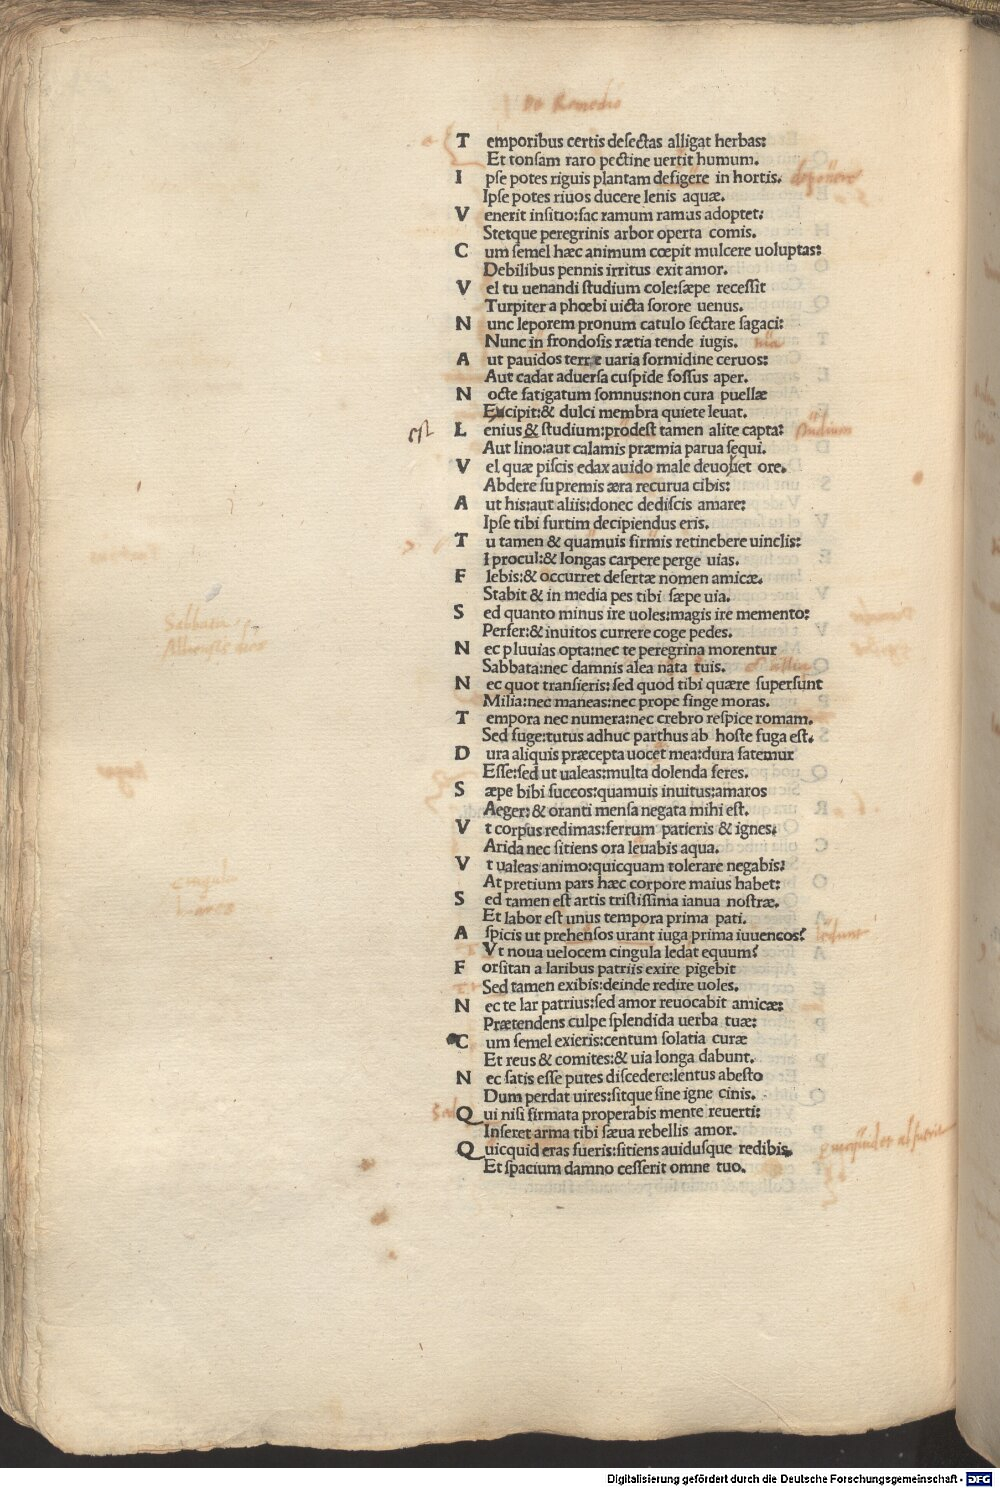 De Remedio
T emporibus certis desectas alligat herbas:
Et tonsam raro pectine uertit humum.
I pse potes riguis plantam defigere in hortis. deponere
Ipse potes riuos ducere lenis aquæ.
V enerit insitio:fac ramum ramus adoptet:
Stetque peregrinis arbor operta comis.
C um semel hæc animum cœpit mulcere uoluptas:
Debilibus pennis irritus exit amor.
V el tu uenandi studium cole:sæpe recessit
Turpiter a phœbi uicta sorore uenus.
N unc leporem pronum catulo sectare sagaci:
Nunc in frondosis rætia tende iugis.
A ut pauidos terre uaria formidine ceruos:
Aut cadat aduersa cuspide fossus aper.
N octe fatigatum somnus:non cura puellæ
Excipit:& dulci membra quiete leuat.
est L enius & studium:prodest tamen alite capta: studium
Aut lino:aut calamis præmia parua sequi.
V el quæ piscis edax auido male deuoret ore.
Abdere supremis æra recurua cibis:
A ut his:aut aliis:donec dediscis amare:
Ipse tibi furtim decipiendus eris.
T u tamen & quamuis firmis retinebere uinclis:
I procul:& longas carpere perge uias.
F lebis:& occurret desertæ nomen amicæ.
Stabit & in media pes tibi sæpe uia.
S ed quanto minus ire uoles:magis ire memento:
Sabbata
Perfer:& inuitos currere coge pedes.
N ec pluuias opta:nec te peregrina morentur
Sabbata:nec damnis alea nata tuis.
N ec quot transieris:sed quod tibi quære supersunt
Milia:nec maneas:nec prope finge moras.
T empora nec numera:nec crebro respice romam.
Sed fuge:tutus adhuc parthus ab hoste fuga est.
D ura aliquis præcepta uocet mea:dura fatemur
Esse:sed ut ualeas:multa dolenda feres.
S æpe bibi succos:quamuis inuitus:amaros
Aeger:& oranti mensa negata mihi est.
V t corpus redimas:ferrum patieris & ignes.
Arida nec sitiens ora leuabis aqua.
V t ualeas animo:quicquam tolerare negabis:
At pretium pars hæc corpore maius habet:
S ed tamen est artis tristissima ianua nostræ.
Et labor est unus tempora prima pati.
A spicis ut prehensos urant iuga prima iuuencos? ledunt
Vt noua uelocem cingula ledat equum?
F orsitan a laribus patriis exire pigebit
Sed tamen exibis:deinde redire uoles.
N ec te lar patrius:sed amor reuocabit amicæ:
Prætendens culpe splendida uerba tuæ:
C um semel exieris:centum solatia curæ
Et reus & comites:& uia longa dabunt.
N ec satis esse putes discedere:lentus abesto
Dum perdat uires:sitque sine igne cinis.
Q ui nisi firmata properabis mente reuerti:
Inseret arma tibi sæua rebellis amor.
Q uicquid eras fueris:sitiens auidusque redibis.
Et spacium damno cesserit omne tuo.
Digitalisierung gefördert durch die Deutsche Forschungsgemeinschaft - DFG